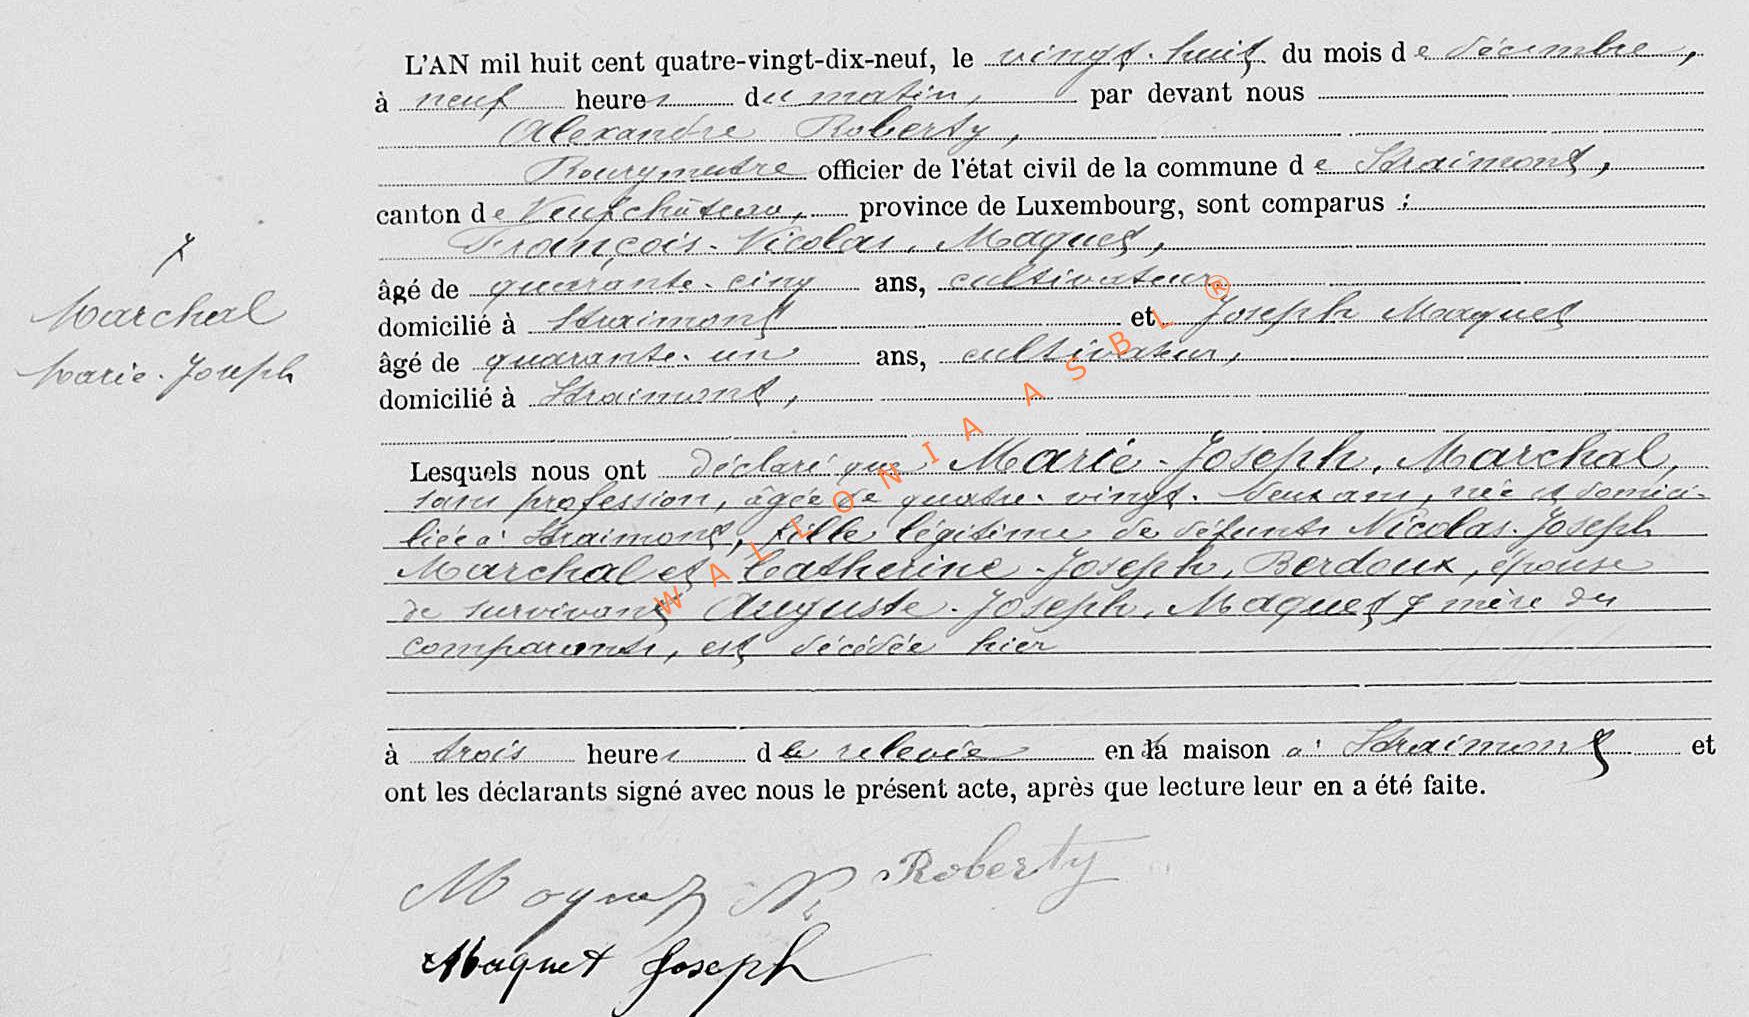 L'AN mil huit cent quatre-vingt-dix-neuf, le vingt-huit du mois de décembre,
à neuf heures du matin, par devant nous
Alexandre Roberty,
Bourgmestre officier de l'état civil de la commune de Straimont,
canton de Neufchâteau, province de Luxembourg, sont comparus :
François-Nicolas, Maquet,
âgé de quarante-cinq ans, cultivateur
domicilié à Straimont et Joseph Maquet
âgé de quarante-un ans, cultivateur,
domicilié à Straimont,
†
Marchal
Marie-Joseph
Lesquels nous ont déclaré que Marie-Joseph, Marchal,
sans profession, âgée de quatre-vingt-deux ans, née et domici-
liée à Straimont, fille légitime de défunts Nicolas-Joseph
Marchal et Catherine-Joseph, Berdoux, épouse
de survivant Auguste-Joseph, Maquet & mère des
comparants, est décédée hier
à trois heures de relevée en la maison à Straimont et
ont les déclarants signé avec nous le présent acte, après que lecture leur en a été faite.
Maquet N. Roberty
Maquet Joseph
WALLONIA ASBL ®